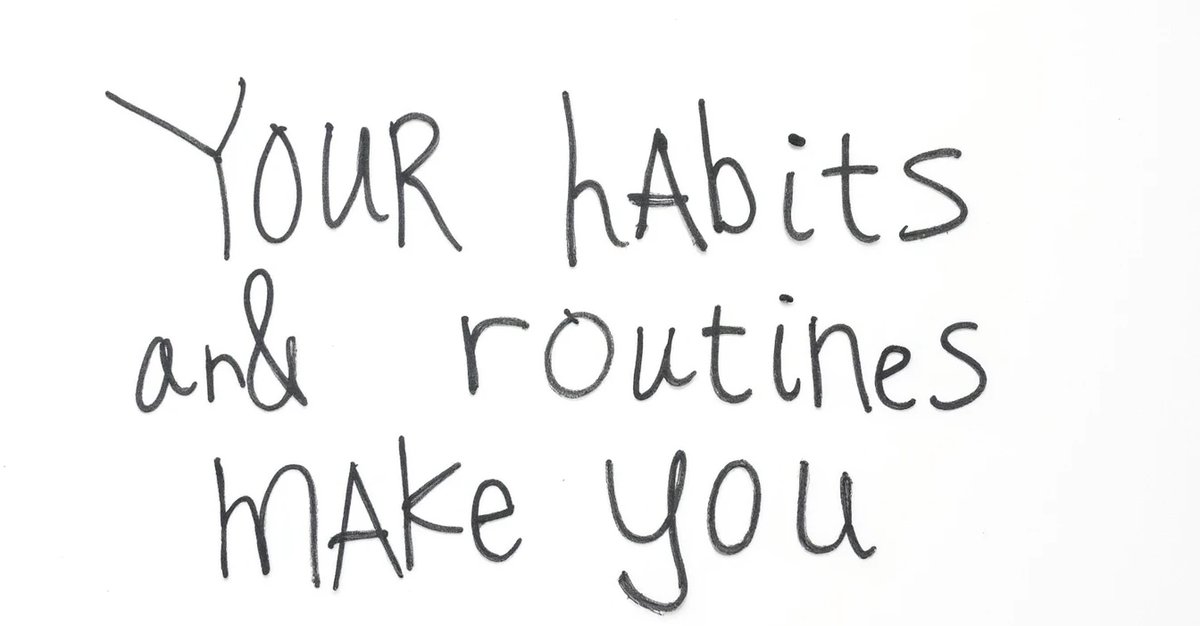 YOUR hAbits
and routines
mAKe you